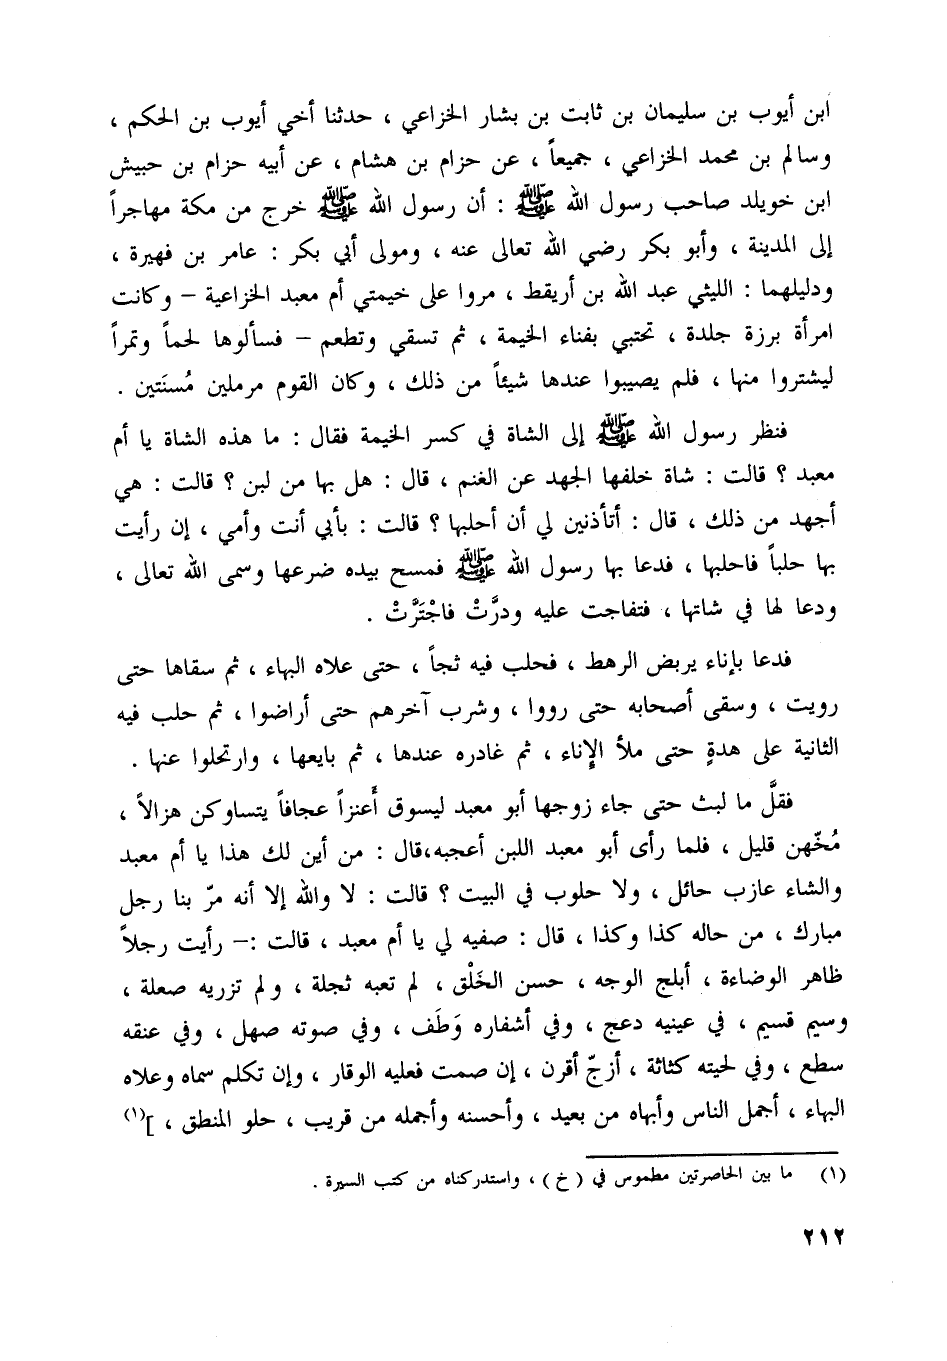 ابن أيوب بن سليمان بن ثابت بن بشار الخزاعي ، حدثنا أخي أيوب بن الحكم ،
وسالم بن محمد الخزاعي ، جميعاً ، عن حزام بن هشام ، عن أبيه حزام بن حبيش
ابن خويلد صاحب رسول الله ﷺ : أن رسول الله ﷺ خرج من مكة مهاجراً
إلى المدينة ، وأبو بكر رضي الله تعالى عنه ، ومولى أبي بكر : عامر بن فهيرة ،
ودليلهما : الليثي عبد الله بن أريقط ، مروا على خيمتي أم معبد الخزاعية – وكانت
امرأة برزة جلدة ، تحتبي بفناء الخيمة ، ثم تسقي وتطعم – فسألوها لحماً وتمراً
ليشتروا منها ، فلم يصيبوا عندها شيئاً من ذلك ، وكان القوم مرملين مُسنَتين .
فنظر رسول الله ﷺ إلى الشاة في كسر الخيمة فقال : ما هذه الشاة يا أم
معبد ؟ قالت : شاة خلفها الجهد عن الغنم ، قال : هل بها من لبن ؟ قالت : هي
أجهد من ذلك ، قال : أتأذنين لي أن أحلبها ؟ قالت : بأبي أنت وأمي ، إن رأيت
بها حلباً فاحلبها ، فدعا بها رسول الله ﷺ فمسح بيده ضرعها وسمى الله تعالى ،
ودعا لها في شاتها ، فتفاجت عليه ودرَّتْ فاجْتَرَّتْ .
فدعا بإناء يربض الرهط ، فحلب فيه ثجاً ، حتى علاه البهاء ، ثم سقاها حتى
رويت ، وسقى أصحابه حتى رووا ، وشرب آخرهم حتى أراضوا ، ثم حلب فيه
الثانية على هدةٍ حتى ملأ الإناء ، ثم غادره عندها ، ثم بايعها ، وارتحلوا عنها .
فقلَّ ما لبث حتى جاء زوجها أبو معبد ليسوق أَعنزاً عجافاً يتساوكن هزالاً ،
مُخّهن قليل ، فلما رأى أبو معبد اللبن أعجبه،قال : من أين لك هذا يا أم معبد
والشاء عازب حائل ، ولا حلوب في البيت ؟ قالت : لا والله إلا أنه مرّ بنا رجل
مبارك ، من حاله كذا وكذا ، قال : صفيه لي يا أم معبد ، قالت :– رأيت رجلاً
ظاهر الوضاءة ، أبلج الوجه ، حسن الخَلْق ، لم تعبه ثجلة ، ولم تزريه صعلة ،
وسيم قسيم ، في عينيه دعج ، وفي أشفاره وَطَف ، وفي صوته صهل ، وفي عنقه
سطع ، وفي لحيته كثاثة ، أزجّ أقرن ، إن صمت فعليه الوقار ، وإن تكلم سماه وعلاه
البهاء ، أجمل الناس وأبهاه من بعيد ، وأحسنه وأجمله من قريب ، حلو المنطق ، ](١)
(١) ما بين الحاصرتين مطموس في ( خ ) ، واستدركناه من كتب السيرة .
٢١٢